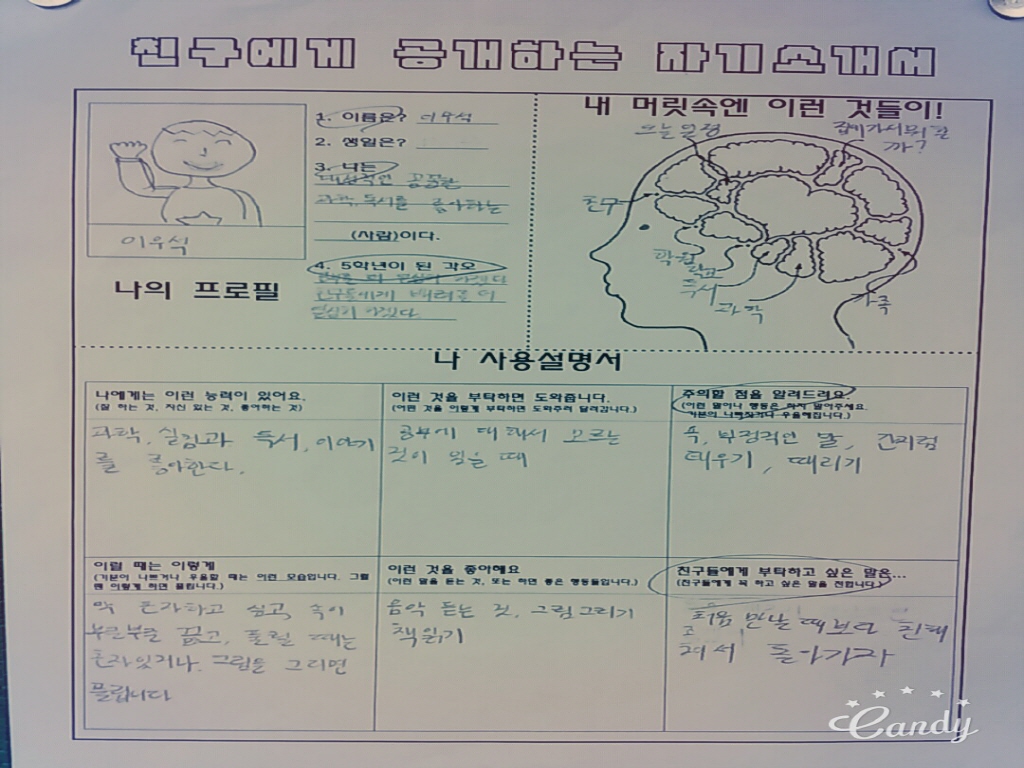 친구에게 공개하는 자기소개서
1. 이름은? 이우석
2. 생일은?
3. 나는
과학, 독서를 좋아하는
(사람)이다.
4. 5학년이 된 각오
친구들에게 배려를 더
열심히 하겠다.
이우석
나의 프로필
내 머릿속엔 이런 것들이!
오늘 일정
집에가서 뭐 할
까?
친구
학원
학교
독서
과학
가족
나 사용설명서
나에게는 이런 능력이 있어요.
(잘 하는 것, 자신 있는 것, 좋아하는 것)
과학, 실험과 독서, 이야기
를 좋아한다.
이런 것을 부탁하면 도와줍니다.
(이런 것을 이렇게 부탁하면 도와주러 달려갑니다.)
공부에 대해서 모르는
것이 있을 때
주의할 점을 알려드려요
(이런 말이나 행동은 하지 말아주세요.
기분이 나빠지거나 우울해집니다.)
욕, 부정적인 말, 간지럼
태우기, 때리기
이럴 때는 이렇게
(기분이 나쁘거나 우울할 때는 이런 모습입니다. 그럴
땐 이렇게 하면 풀립니다.)
막 혼자하고 싶고, 속이
부글부글 끓고, 풀릴 때는
혼자있거나, 그림을 그리면
풀립니다
이런 것을 좋아해요
(이런 말을 듣는 것, 또는 하면 좋은 행동들입니다.)
음악 듣는 것, 그림그리기
책읽기
친구들에게 부탁하고 싶은 말은...
(친구들에게 꼭 하고 싶은 말을 전합니다.)
처음 만날 때보다 친해
져서 돌아가자
Candy